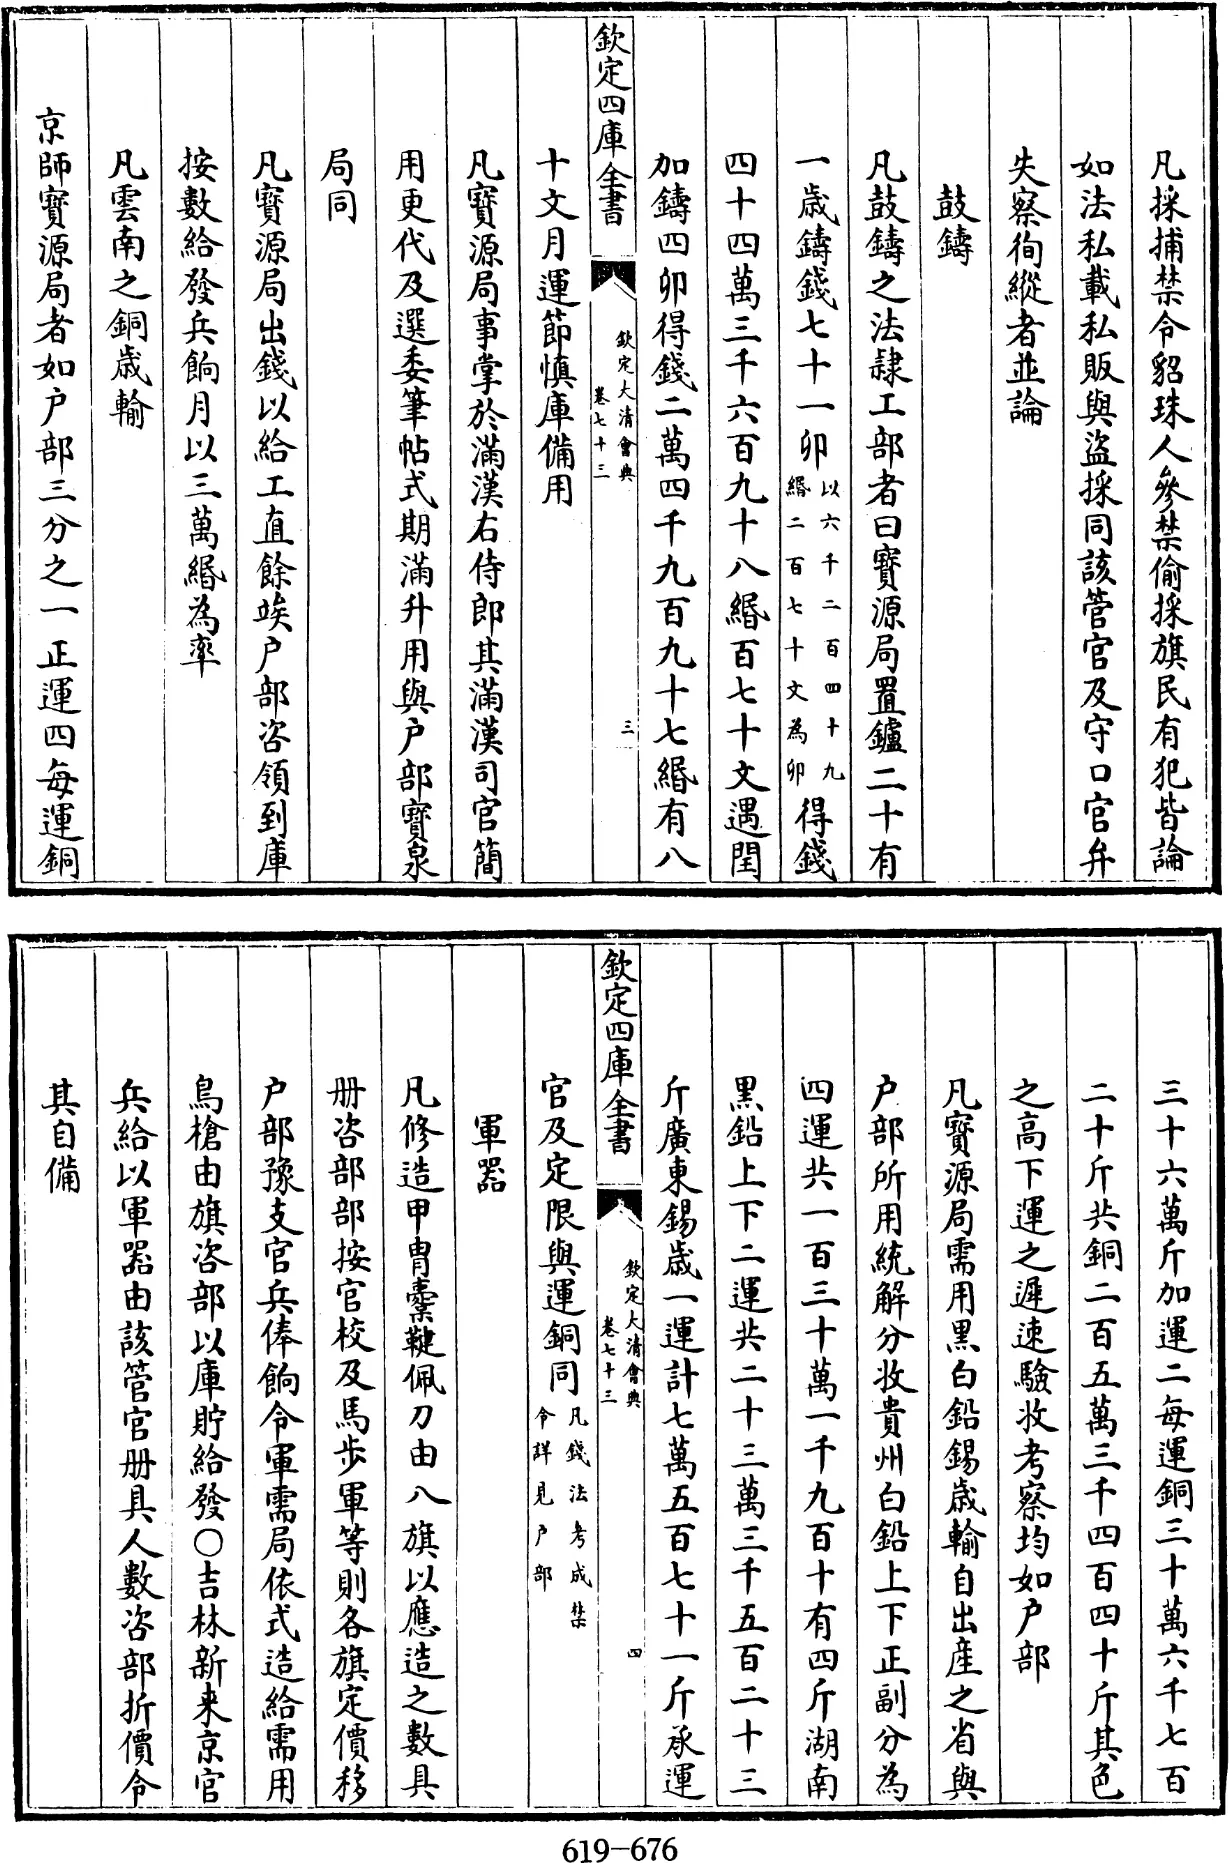 凡採捕禁令貂珠人參禁偷採旗民有犯皆論
如法私載私販與盜採同該管官及守口官弁
失察徇縱者並論
鼓鑄
凡鼓鑄之法隷工部者曰寳源局置鑪二十有
一歲鑄錢七十一卯以六千二百四十九緡二百七十文為卯得錢
四十四萬三千六百九十八緡百七十文遇閏
加鑄四卯得錢二萬四千九百九十七緡有八
欽定四庫全書
欽定大清會典
卷七十三
三
十文月運節慎庫備用
凡寳源局事掌於滿漢右侍郎其滿漢司官簡
用更代及選委筆帖式期滿升用與户部寳泉
局同
凡寳源局出錢以給工直餘竢户部咨領到庫
按數給發兵餉月以三萬緡為率
凡雲南之銅歲輸
京師寳源局者如户部三分之一正運四每運銅
三十六萬斤加運二每運銅三十萬六千七百
二十斤共銅二百五萬三千四百四十斤其色
之高下運之遲速驗收考察均如户部
凡寳源局需用黑白鉛錫歲輸自出産之省與
户部所用統解分收貴州白鉛上下正副分為
四運共一百三十萬一千九百十有四斤湖南
黑鉛上下二運共二十三萬三千五百二十三
斤廣東錫歲一運計七萬五百七十一斤承運
欽定四庫全書
欽定大清會典
卷七十三
四
官及定限與運銅同凡錢法考成禁令詳見户部
軍器
凡修造甲冑櫜鞬佩刀由八旗以應造之數具
册咨部部按官校及馬步軍等則各旗定價移
户部豫支官兵俸餉令軍需局依式造給需用
鳥槍由旗咨部以庫貯給發○吉林新来京官
兵給以軍器由該管官册具人數咨部折價令
其自備
619-676